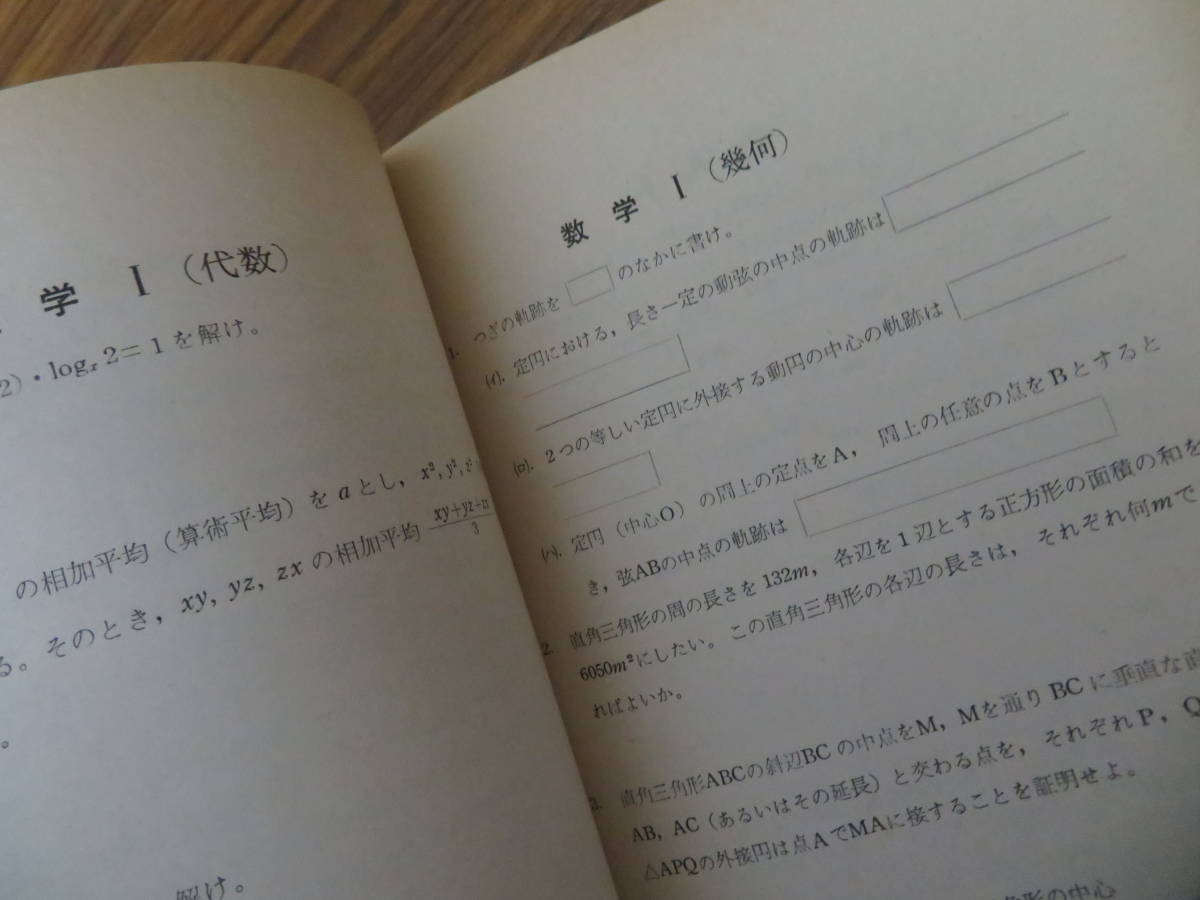 学 Ⅰ (代数)
2)・logₓ2=1 を解け。
の相加平均(算術平均)を a とし, x², y², z²
そのとき, xy, yz, zx の相加平均 xy+yz+zx/3
る。
。
解け。
数 学 Ⅰ (幾何)
1. つぎの軌跡を□のなかに書け。
(イ). 定円における, 長さ一定の動弦の中点の軌跡は
(ロ). 2つの等しい定円に外接する動円の中心の軌跡は
(ハ). 定円(中心O)の周上の定点をA, 周上の任意の点をBとすると
き, 弦ABの中点の軌跡は
2. 直角三角形の周の長さを132m, 各辺を1辺とする正方形の面積の和を
6050m²にしたい。この直角三角形の各辺の長さは, それぞれ何mで
ればよいか。
3. 直角三角形ABCの斜辺BCの中点をM, Mを通りBCに垂直な直
AB, AC(あるいはその延長)と交わる点を, それぞれP, Q
△APQの外接円は点AでMAに接することを証明せよ。
角形の中心